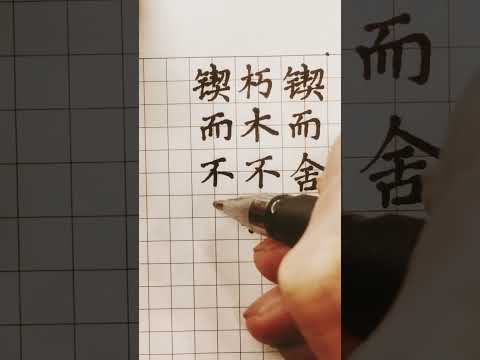 锲而舍
朽木不
锲而不